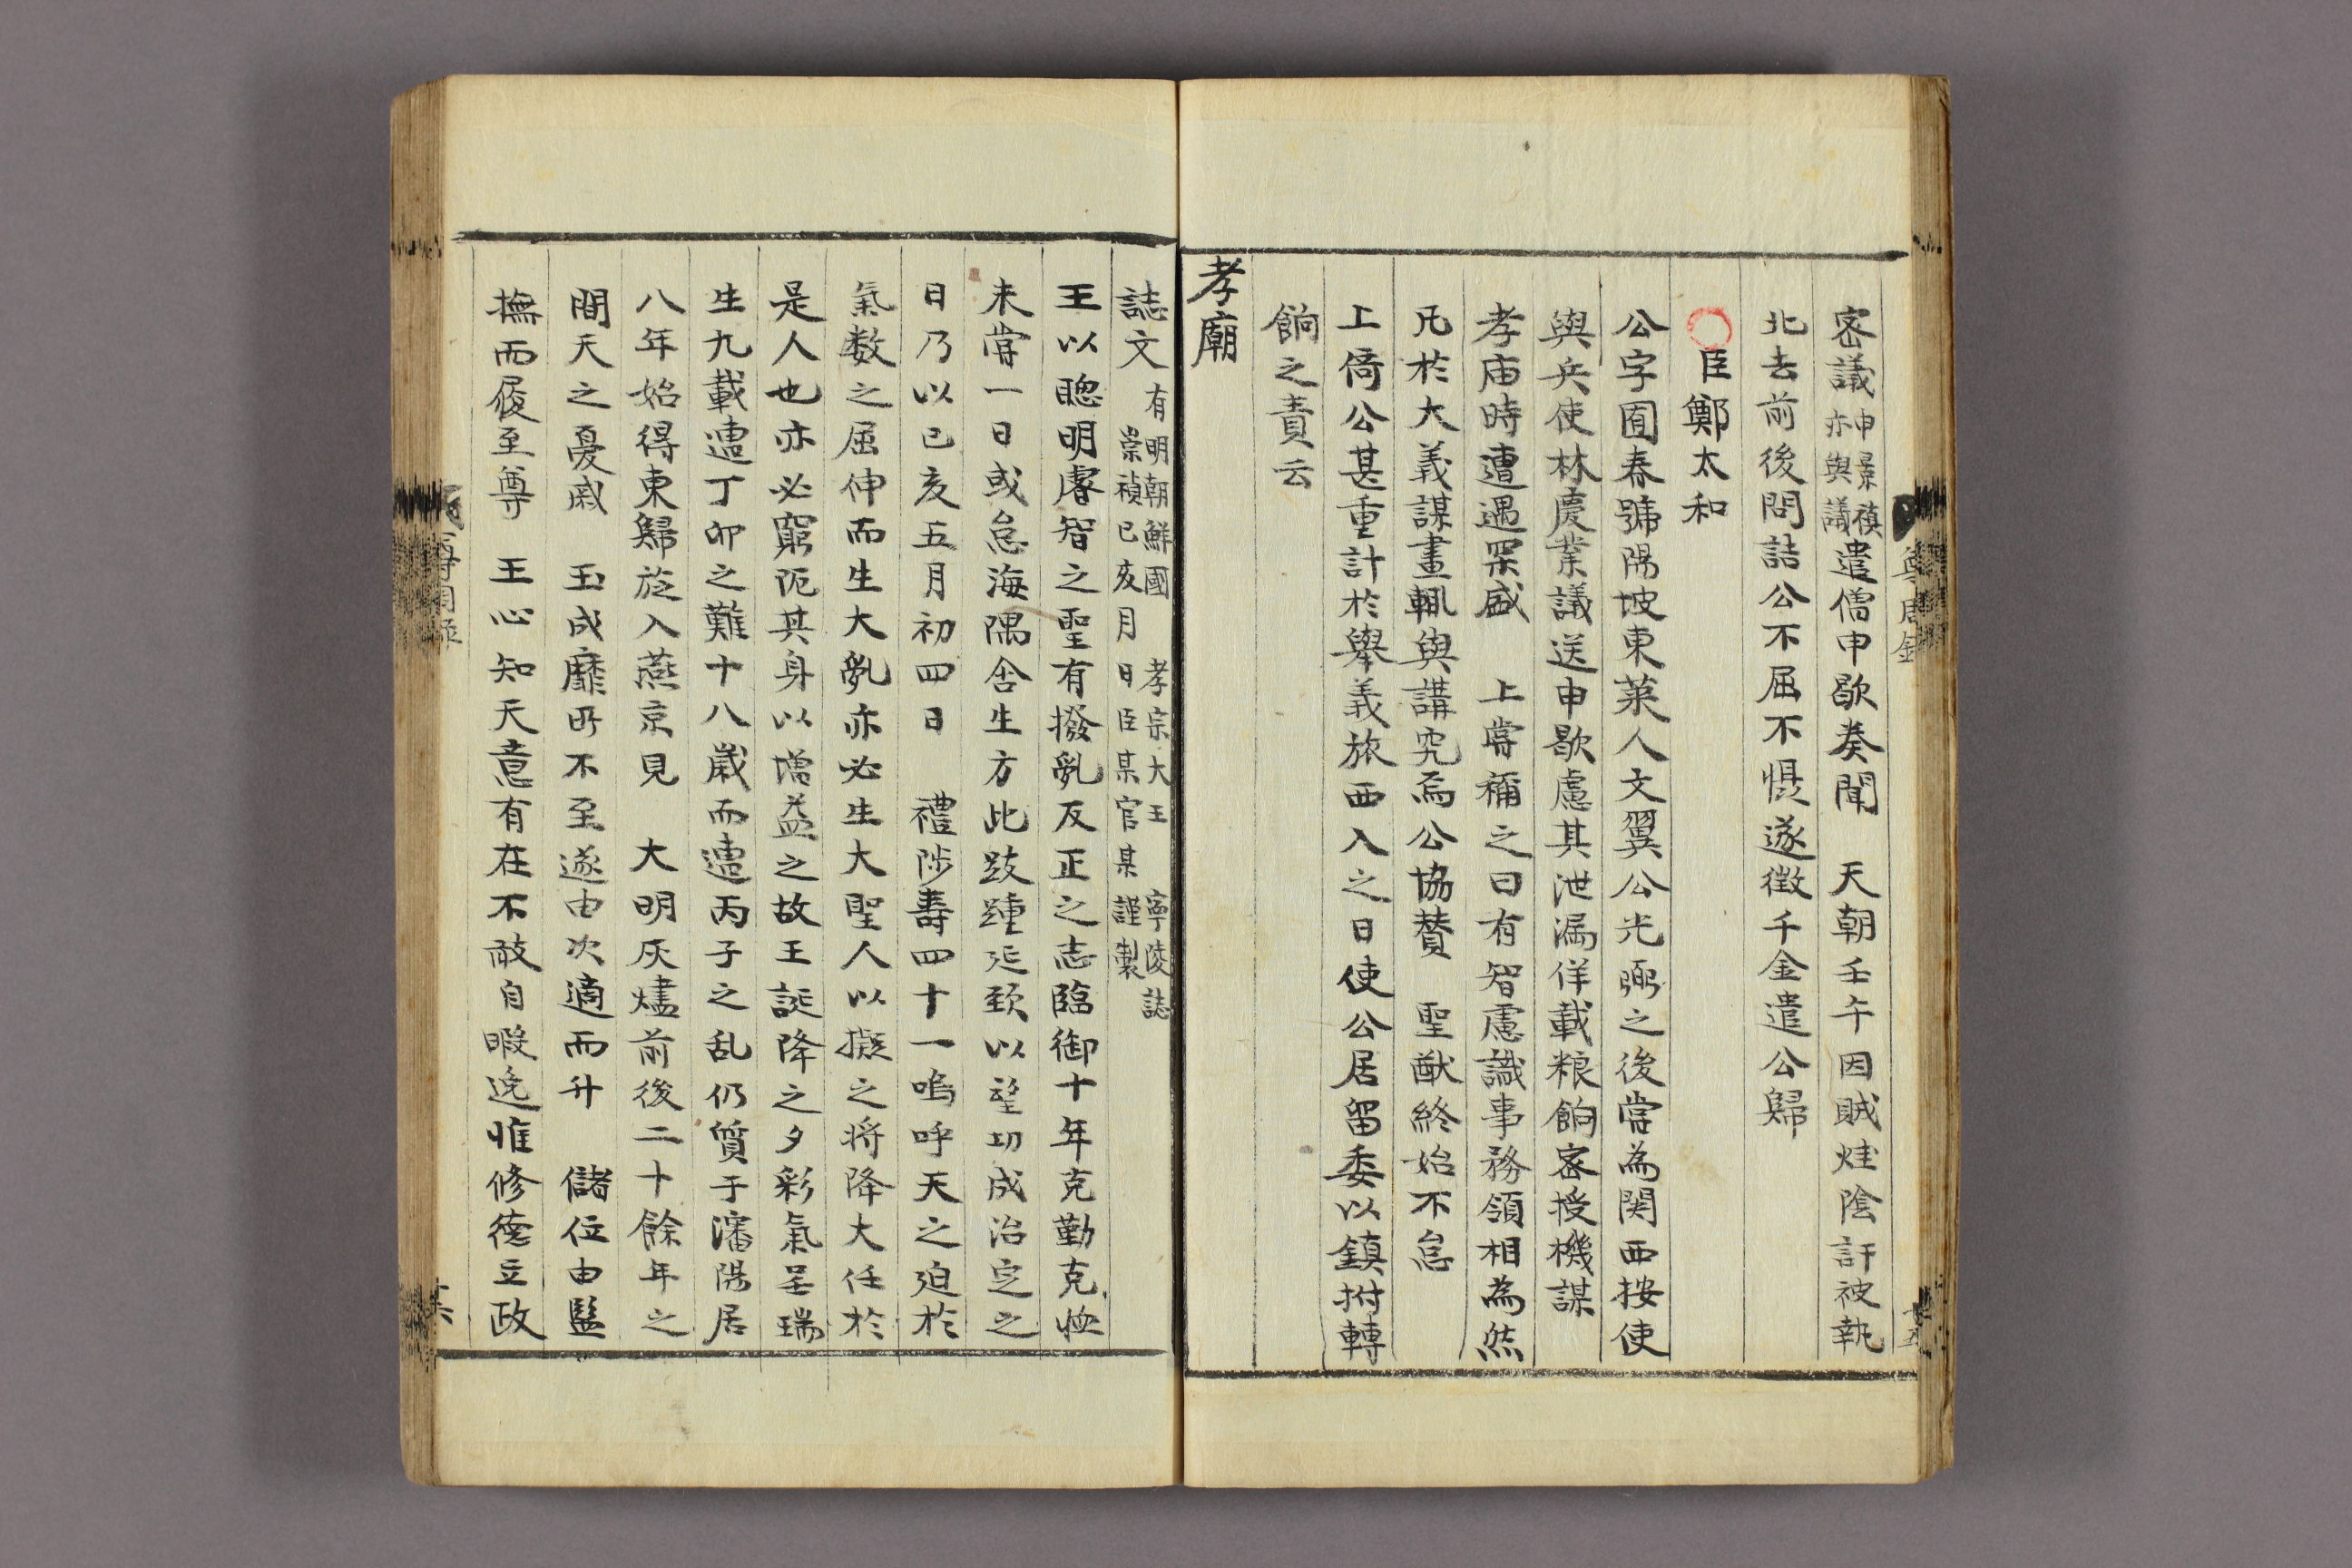 密議申景禛亦與議遣僧申歇奏聞 天朝壬午因賊烓陰訐被執
北去前後問詰公不屈不慑遂徵千金遣公歸
臣鄭太和
公字囿春號陽坡東萊人文翼公光弼之後嘗為関西按使
與兵使林慶業議送申歇慮其泄漏佯載粮餉密授機謀
孝庙時遭遇罙盛 上嘗稱之曰有智慮識事務領相為然
凡於大義謀畫輒與講究焉公協賛 聖猷終始不怠
上倚公甚重計於舉義旅西入之日使公居留委以鎮拊轉
餉之責云
孝廟
誌文有明朝鮮國 孝宗大王 寧陵誌
崇禎已亥月 日臣某官某 謹製
王以聰明睿智之聖有撥亂反正之志臨御十年克勤克恤
未嘗一日或怠海隅含生方此跂踵延頸以望功成治定之
日乃以已亥五月初四日 禮陟壽四十一嗚呼天之廹於
氣数之屈伸而生大亂亦必生大聖人以擬之将降大任於
是人也亦必窮阨其身以增益之故王誕降之夕彩氣呈瑞
生九載遭丁卯之難十八歲而遭丙子之乱仍質于瀋陽居
八年始得東歸旋入燕京見 大明灰燼前後二十餘年之
間天之憂戚 玉成靡所不至遂由次適而升 儲位由監
撫而履至尊 王心知天意有在不敢自暇逸惟修德立政
尊周錄